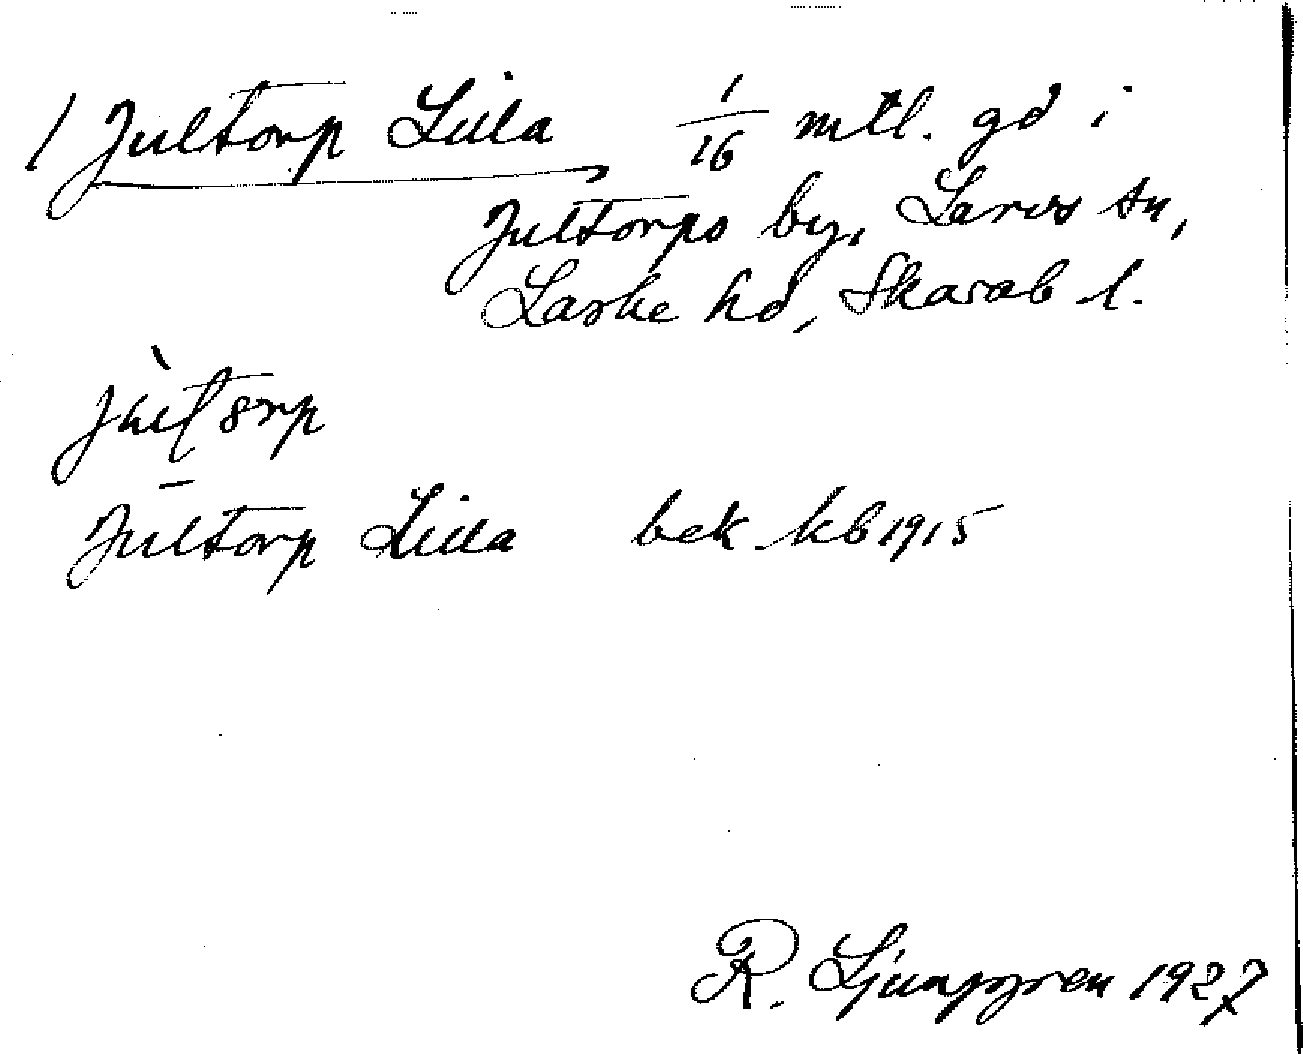 / Jultorp Lilla 1/16 mtl. gd i
Jultorps by, Larvs sn,
Laske hd, Skarab l.
jùlTorp
Jultorp Lilla bek kb 1915
R. Ljunggren 1927